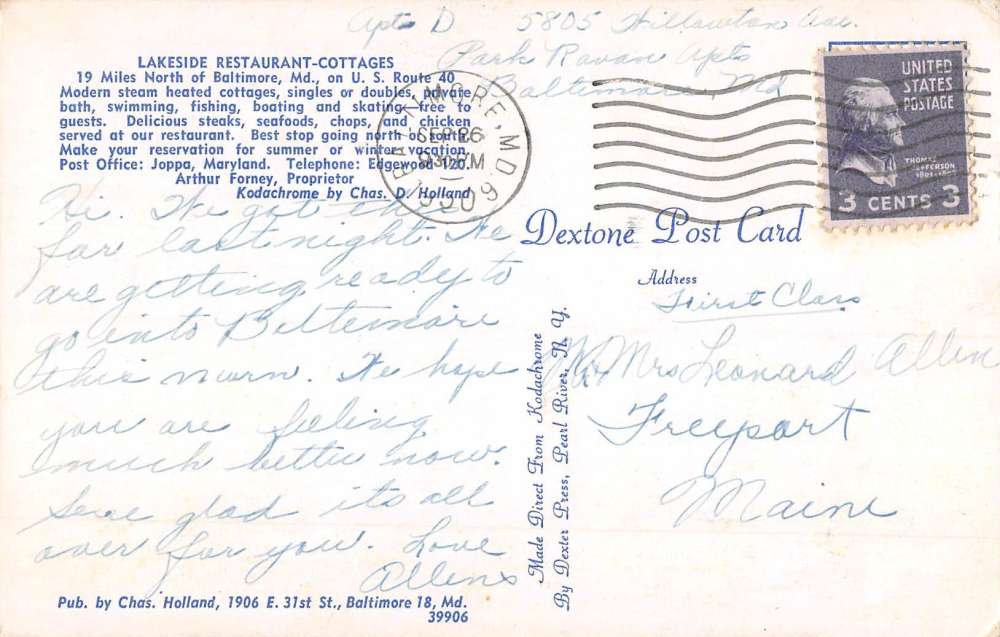 Apts D 5805 Willowton Ave.
Park Ravan Apts
Baltimore, Md
LAKESIDE RESTAURANT-COTTAGES
19 Miles North of Baltimore, Md., on U. S. Route 40
Modern steam heated cottages, singles or doubles, private
bath, swimming, fishing, boating and skating free to
guests. Delicious steaks, seafoods, chops, and chicken
served at our restaurant. Best stop going north or south.
Make your reservation for summer or winter vacation.
Post Office: Joppa, Maryland. Telephone: Edgewood 120.
Arthur Forney, Proprietor
Kodachrome by Chas. D. Holland
BALTIMORE, MD. 6
SEP 26
PM
1950
UNITED
STATES
POSTAGE
THOMAS
JEFFERSON
3 CENTS 3
Hi. We got this
far last night. We
are getting ready to
go into Beltemore
this morn. We hope
you are feeling
much better now.
glad its all
over for you. Love
Allens
Dextone Post Card
Address
First Class
Mr Mrs Leonard Allen
Freeport
Maine
Made Direct From Kodachrome
By Dexter Press, Pearl River, N. Y.
Pub. by Chas. Holland, 1906 E. 31st St., Baltimore 18, Md.
39906